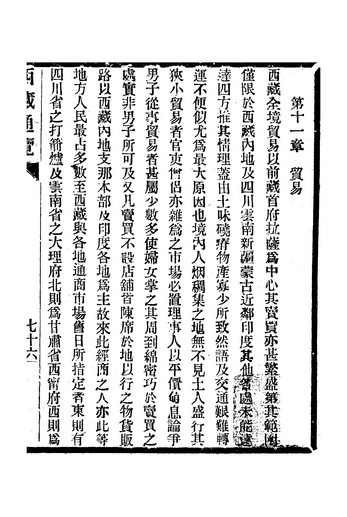 第十一章　貿易
西藏全境貿易以前藏首府拉薩爲中心其賣買亦甚繁盛第其範圍
僅限於西藏內地及四川雲南新疆蒙古近鄰印度其他各處未能遠
達四方推其情理蓋由土味磽瘠物產寡少所致然語及交通艱難轉
運不便似尤爲最大原因也境內人烟稠集之地無不見土人盛行其
狹小貿易者官吏僧侶亦雜爲之市場必置理事人以平價息論爭
男子從事貿易者甚屬少數多使婦女掌之其周到綿密巧於賣買之
處實非男子所可及又凡賣買不設店舖皆陳席於地以行之物貨販
路以西藏內地支那本部及印度各地爲主故來此經商之人亦此等
地方人民最占多數至西藏與各地通商市場舊日所指定者東則有
四川省之打箭爐及雲南省之大理府北則爲甘肅省西甯府西則爲
西藏通覽
七十六